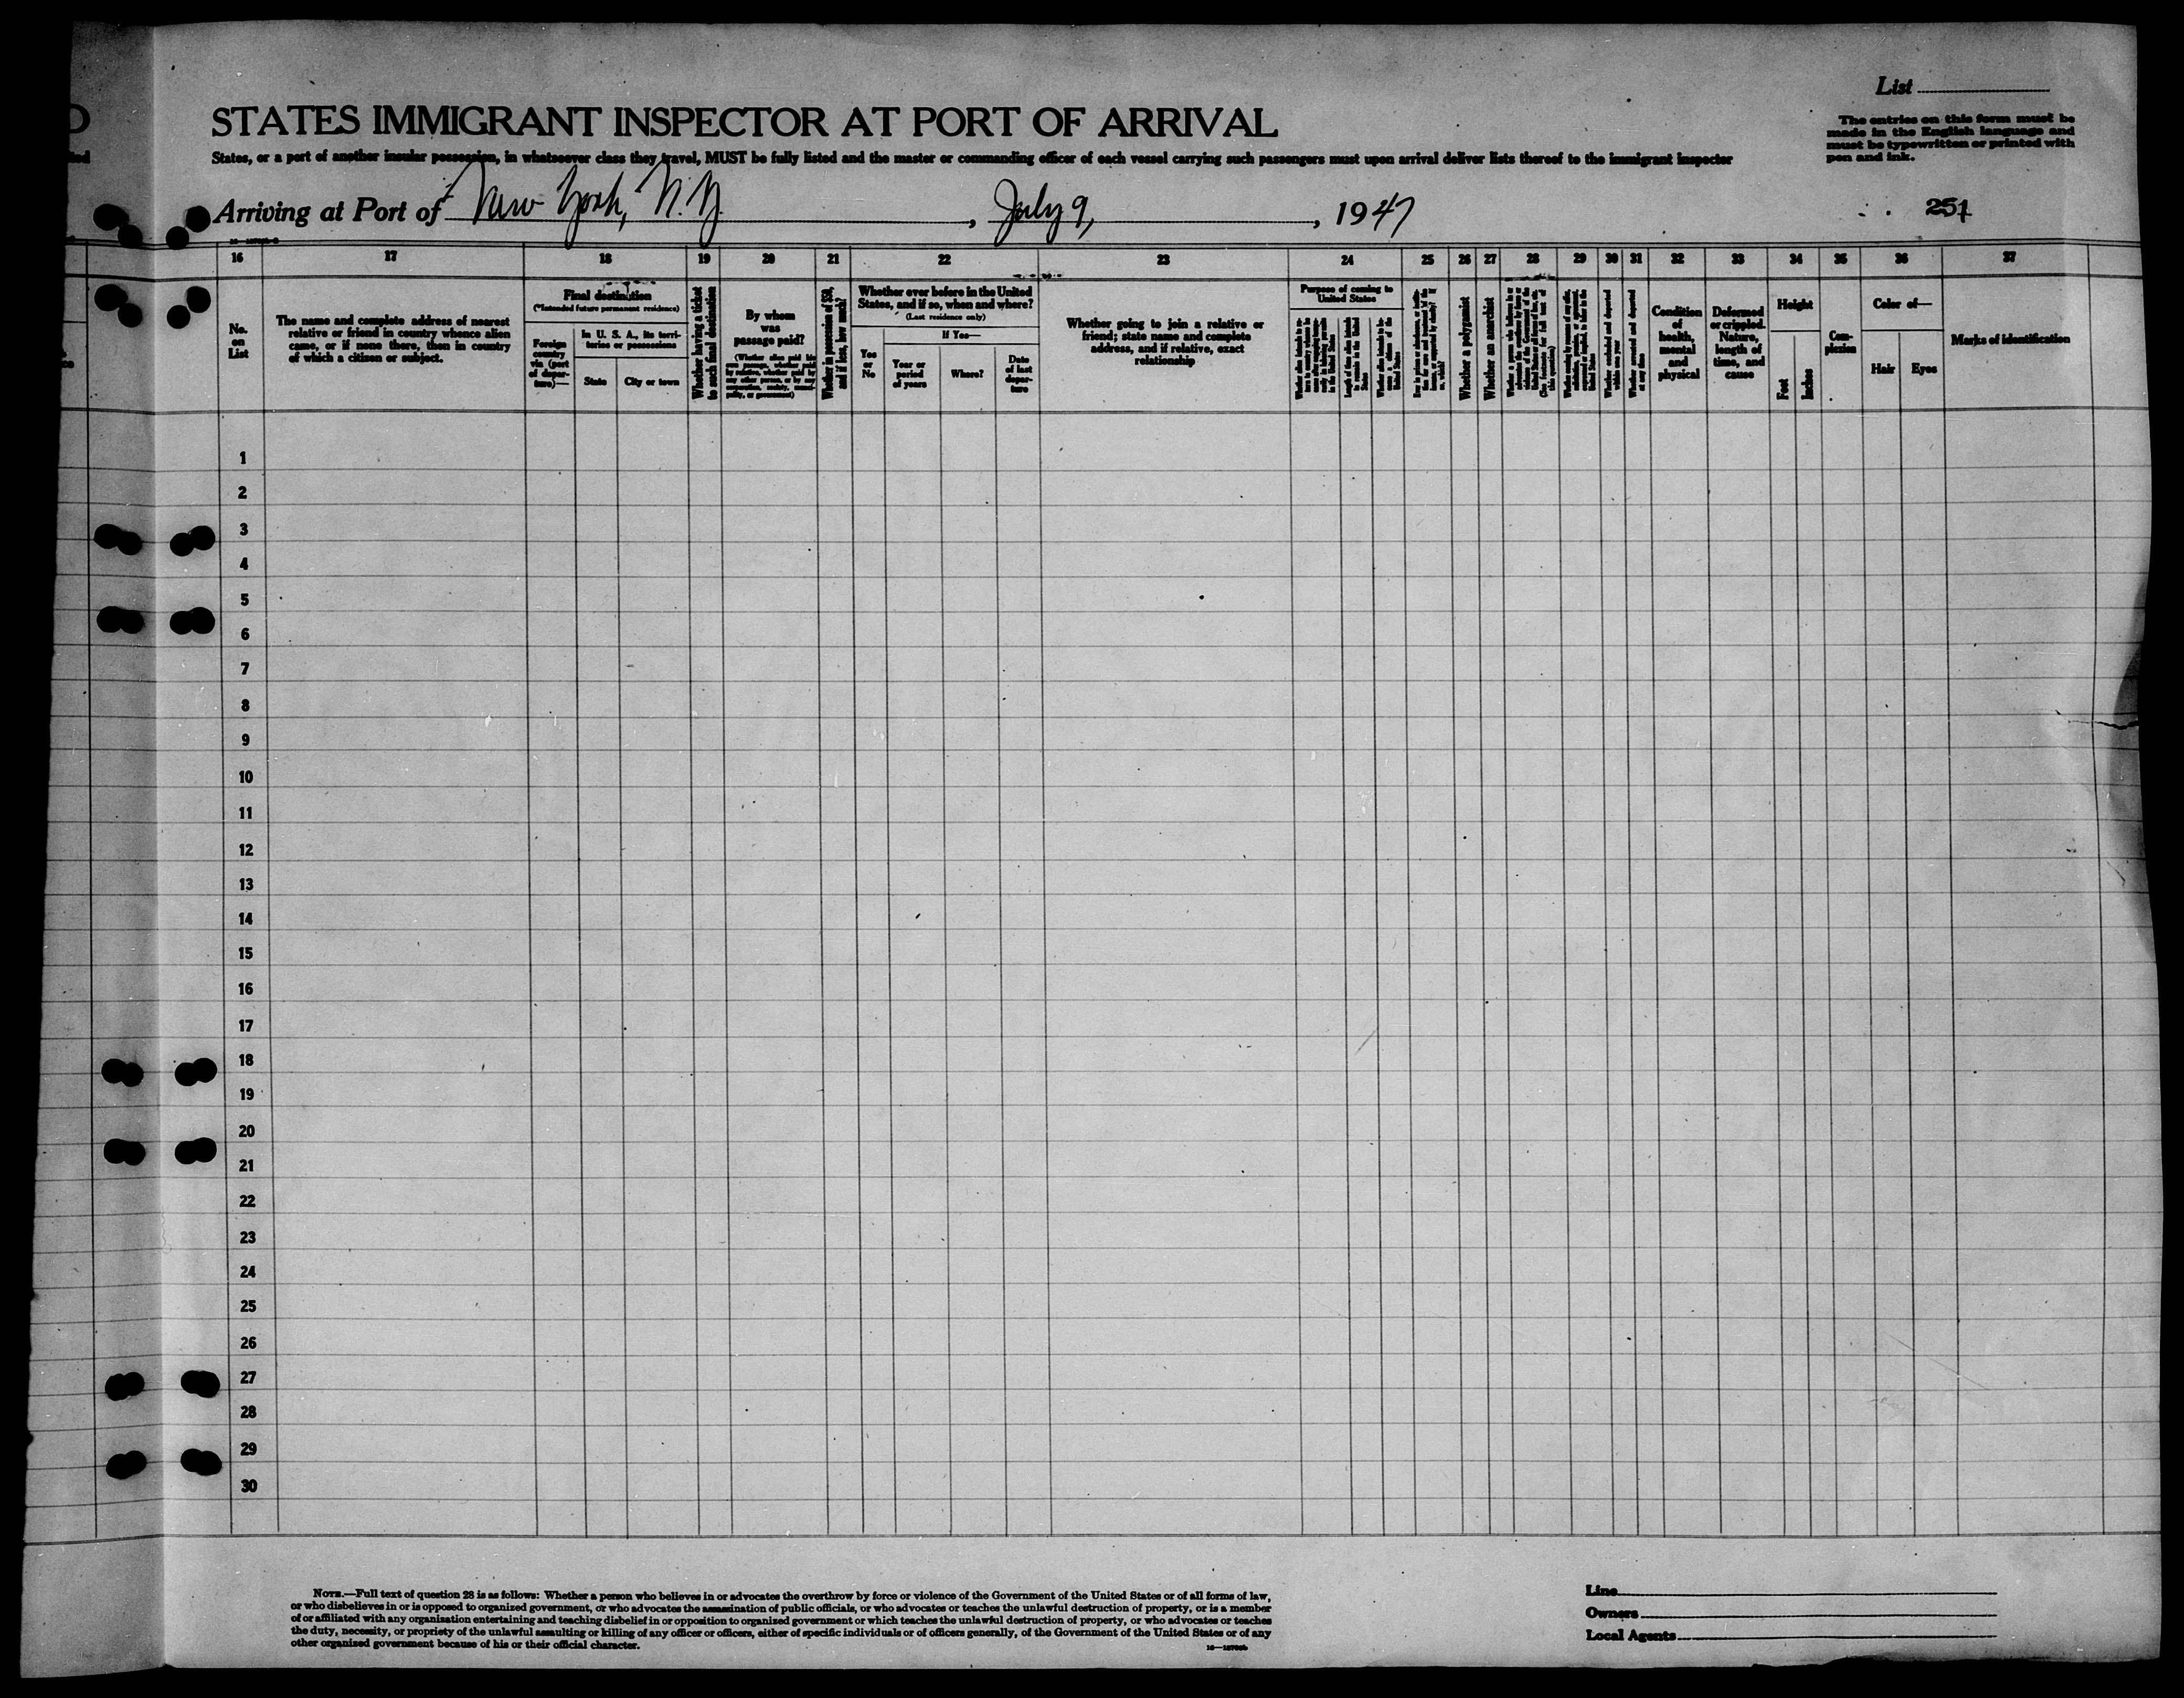 List
STATES IMMIGRANT INSPECTOR AT PORT OF ARRIVAL
The entries on this form must be
made in the English language and
must be typewritten or printed with
pen and ink.
States, or a port of another insular possession, in whatsoever class they travel, MUST be fully listed and the master or commanding officer of each vessel carrying such passengers must upon arrival deliver lists thereof to the immigrant inspector
Arriving at Port of New York, N.Y., July 9, 1947
251
16 17 18 19 20 21 22 23 24 25 26 27 28 29 30 31 32 33 34 35 36 37
No.
on
List
The name and complete address of nearest
relative or friend in country whence alien
came, or if none there, then in country
of which a citizen or subject.
Final destination
(*Intended future permanent residence)
Foreign
country
via (port
of depar-
ture)—
In U. S. A., its terri-
tories or possessions
State
City or town
Whether having a ticket
to such final destination
By whom
was
passage paid?
(Whether alien paid his
own passage, whether paid
by relative, whether paid by
any other person, or by any
corporation, society, munici-
pality, or government)
Whether in possession of $50,
and if less, how much?
Whether ever before in the United
States, and if so, when and where?
(Last residence only)
Yes
or
No
If Yes—
Year or
period
of years
Where?
Date
of last
depar-
ture
Whether going to join a relative or
friend; state name and complete
address, and if relative, exact
relationship
Purpose of coming to
United States
Whether a polygamist
Whether an anarchist
Condition
of
health,
mental
and
physical
Deformed
or crippled.
Nature,
length of
time, and
cause
Height
Feet
Inches
Com-
plexion
Color of—
Hair
Eyes
Marks of identification
1
2
3
4
5
6
7
8
9
10
11
12
13
14
15
16
17
18
19
20
21
22
23
24
25
26
27
28
29
30
NOTE.—Full text of question 28 is as follows: Whether a person who believes in or advocates the overthrow by force or violence of the Government of the United States or of all forms of law,
or who disbelieves in or is opposed to organized government, or who advocates the assassination of public officials, or who advocates or teaches the unlawful destruction of property, or is a member
of or affiliated with any organization entertaining and teaching disbelief in or opposition to organized government or which teaches the unlawful destruction of property, or who advocates or teaches
the duty, necessity, or propriety of the unlawful assaulting or killing of any officer or officers, either of specific individuals or of officers generally, of the Government of the United States or of any
other organized government because of his or their official character.
Line
Owners
Local Agents